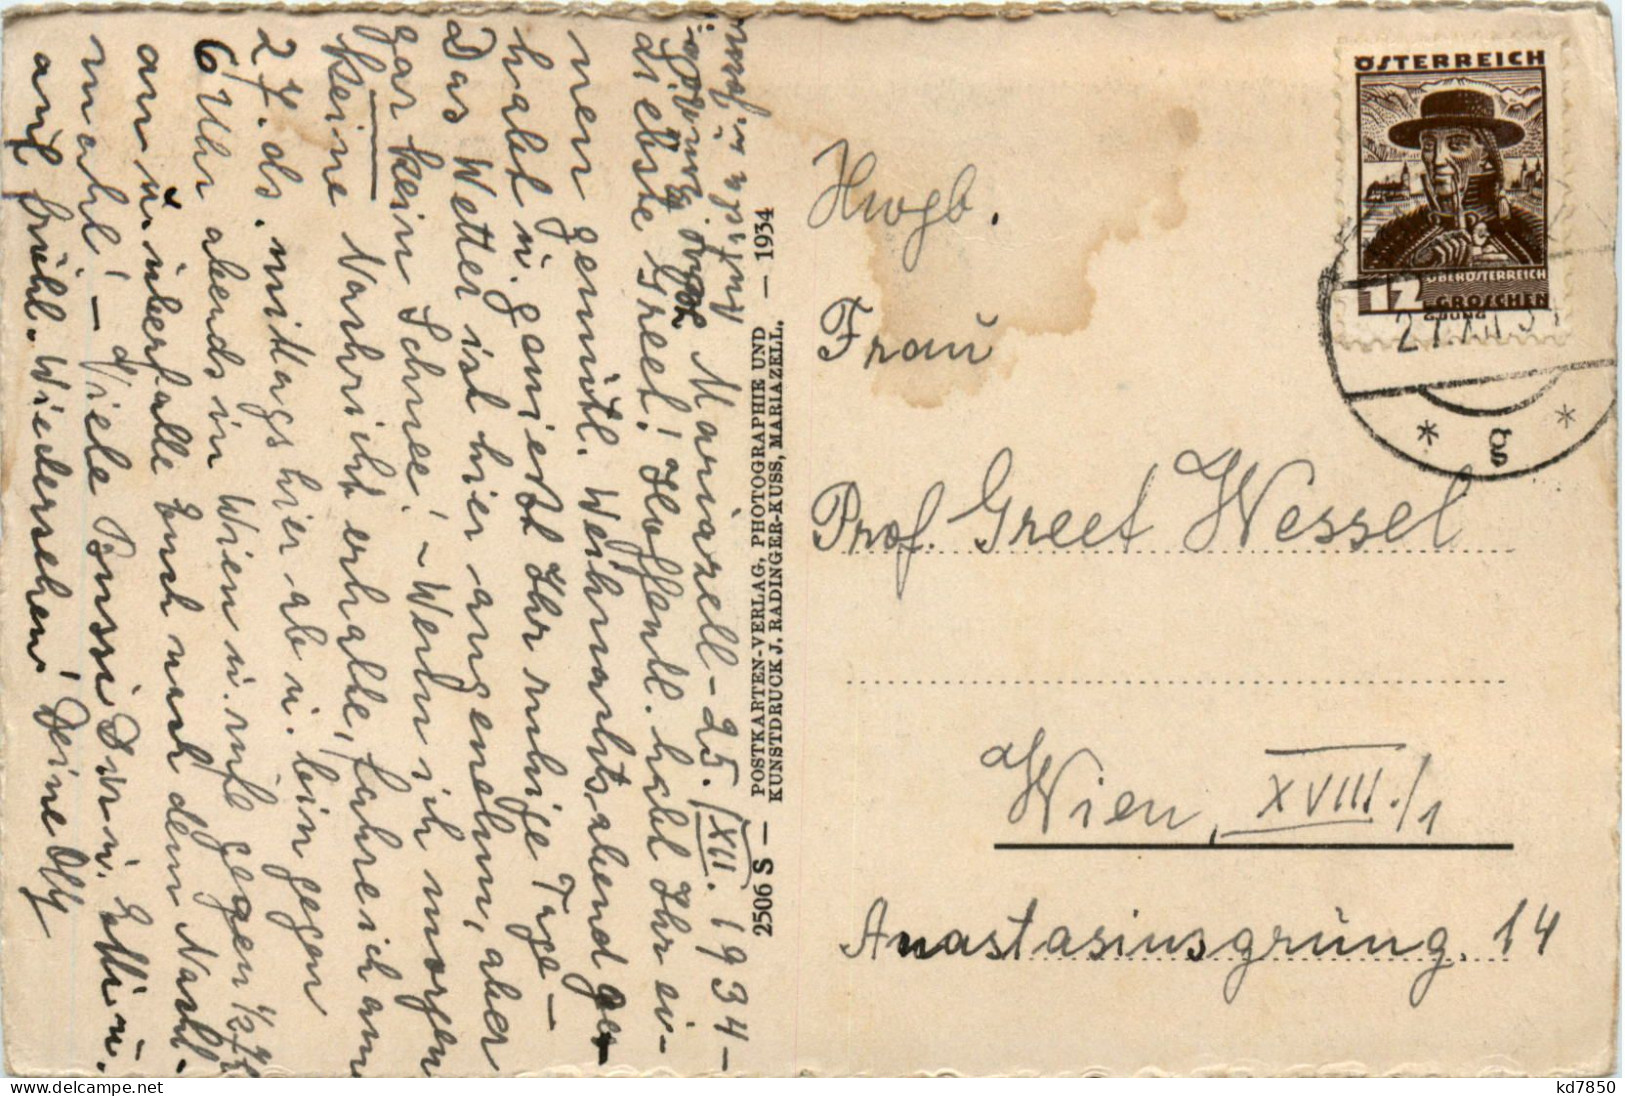 Mariazell – 25./XII. 1934 –
Liebste Greet! Hoffentl. habt Ihr ei-
nen gemütl. Weihnachtsabend ge-
habt u. genießt Ihr ruhige Tage –
Das Wetter ist hier angenehm, aber
gar kein Schnee! – Wenn ich morgen
keine Nachricht erhalte, fahre ich am
27. ds. mittags hier ab u. bin gegen
6 Uhr abends in Wien u. rufe gegen ½7h
an u. überfalle Euch nach dem Nacht-
mahl! – Viele Bussi Dir u. Etti u.
auf bald. Wiedersehen! Deine Olly
2506 S — POSTKARTEN-VERLAG, PHOTOGRAPHIE UND — 1934
KUNSTDRUCK J. RADINGER-KUSS, MARIAZELL.
ÖSTERREICH
OBERÖSTERREICH
12 GROSCHEN
27.XII.34
* g *
Hwgb.
Frau
Prof. Greet Wessel
Wien, XVIII./1
Anastasiusgrüng. 14
kd7850